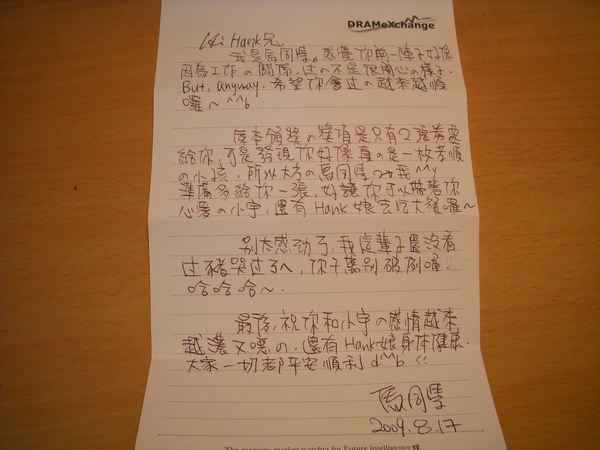 DRAMeXchange
Hi Hank兄,
我是馬同學。感覺你前一陣子好像
因為工作の關係,过の不是很開心の樣子.
But, anyway, 希望你會过の越來越順
囉~ ^^b
原本頒獎の獎項是只有2張券要
給你,可是發現你好像真の是一枚孝順
の小孩,所以大方の馬同學 我^^y
準備多給你一張,好讓你可以帶著你
心愛の小宇,還有Hank娘去吃大餐囉~
別太感动了,我這輩子還沒看
过豬哭过ろへ,你千萬別破例喔
哈哈哈~.
最後,祝你和小宇の感情越來
越濃又噁の.還有Hank娘身体健康.
大家一切都平安順利 d^^b
馬同學
2009.8.17
The memory market watcher for Future intelligence